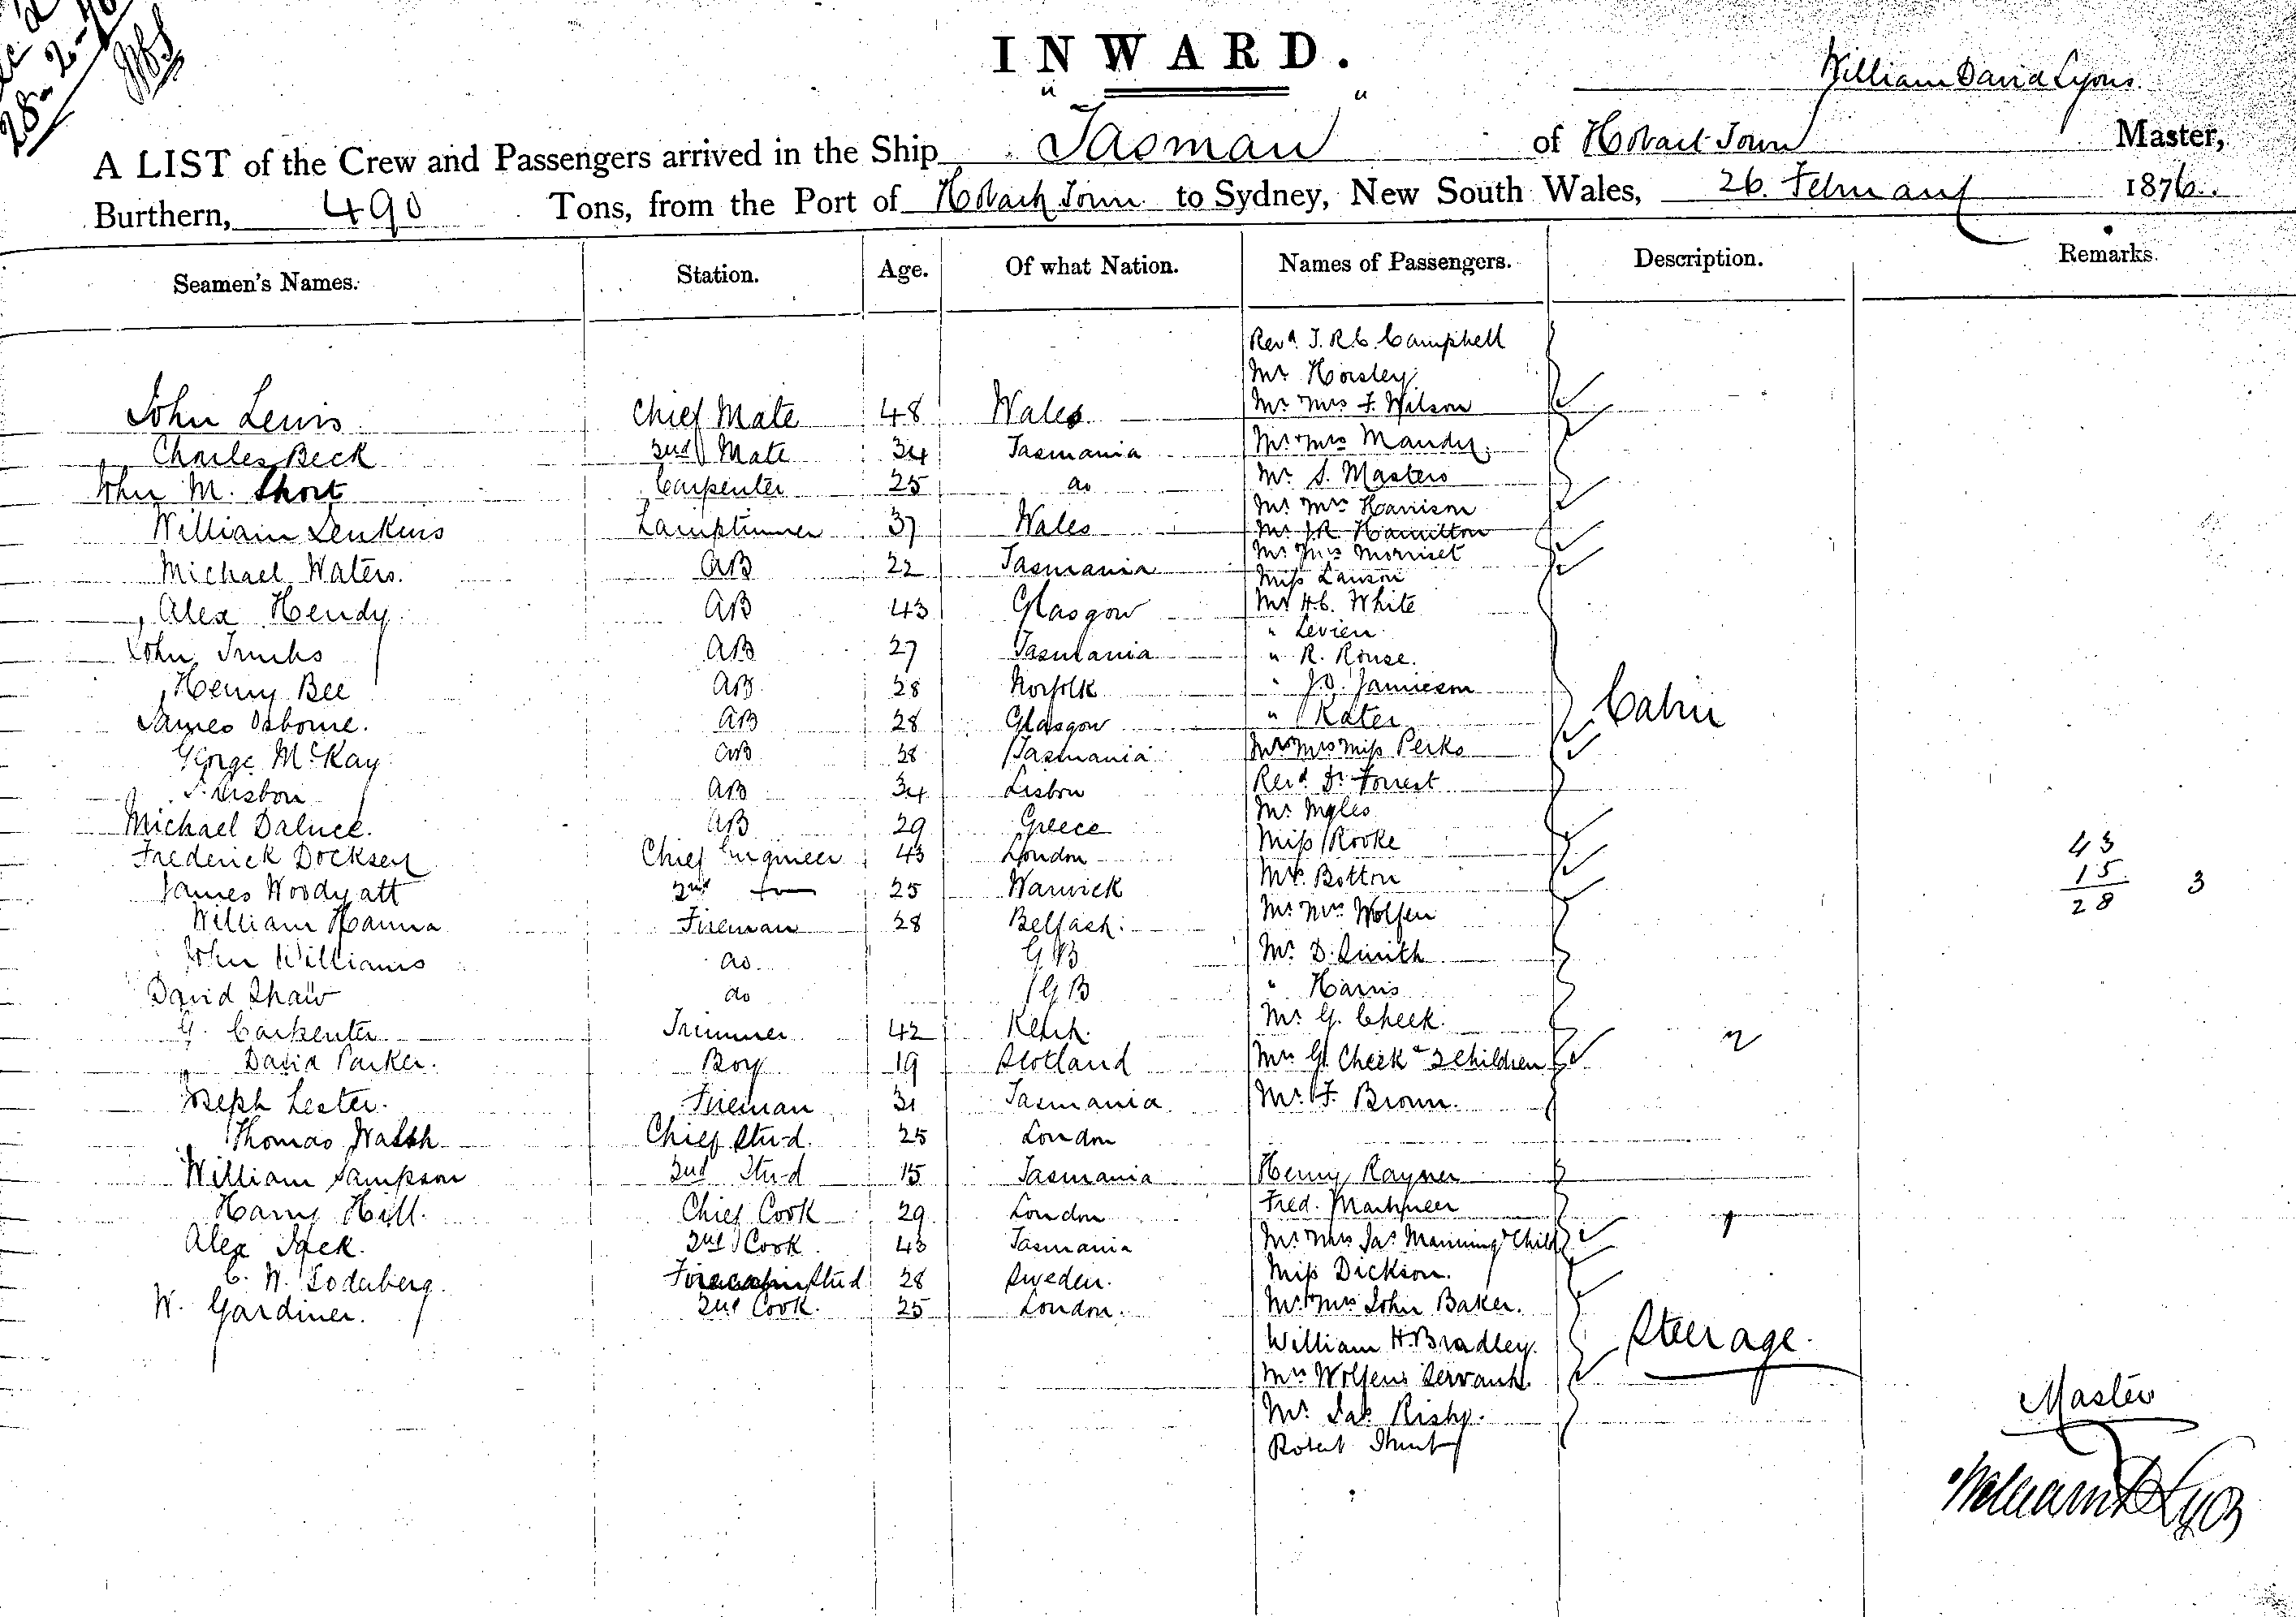 28-2-76
INWARD.
William David Lyons.
A LIST of the Crew and Passengers arrived in the Ship "Tasman" of Hobart Town Master,
Burthern, 490 Tons, from the Port of Hobart Town to Sydney, New South Wales, 26 February 1876.
Seamen's Names. Station. Age. Of what Nation. Names of Passengers. Description. Remarks.
Revd. J. R. C. Campbell
Mr Horsley
John Lewis Chief Mate 48 Wales Mr Mrs F. Wilson
Charles Beck 2nd Mate 34 Tasmania Mr Mrs Mandy
John M. Short Carpenter 25 do Mr. S. Masters
Mr Mrs Harrison
William Jenkins Lamptrimmer 37 Wales Mr. J.R. Hamilton
Mr Mrs Morriset
Michael Waters. AB 22 Tasmania Miss Lawson
Alex Hendy AB 43 Glasgow Mr H.C. White
" Levien
John AB 27 Tasmania " R. Rouse.
Henry Bee AB 28 Norfolk " J.O. Jamieson Cabin
James Osborne. AB 28 Glasgow " Kater
George McKay AB 28 Tasmania Mr Mrs Miss Perks
J. Lisbon AB 34 Lisbon Revd Dr Forrest
Michael Daluce. AB 29 Greece Mr.
Frederick Docksey Chief Engineer 43 London Miss Rooke 43
James Woodyatt 2nd do 25 Warwick Mr. Botton 15 3
William Hanna Fireman 28 Belfast. Mr Mrs Wolfen 28
John Williams do GB Mr. D. Smith
David Shaw do GB " Harris
G. Carpenter Trimmer 42 Kent. Mr. G. Cheek.
David Parker. Boy 19 Scotland Mrs G. Cheek & 2 Children 2
Joseph Lester. Fireman 31 Tasmania Mr. F. Brown.
Thomas Walsh Chief Stud. 25 London
William Sampson 2nd Stud 15 Tasmania Henry Rayner
Harry Hill. Chief Cook 29 London Fred. 1
Alex Jack. 2nd Cook 43 Tasmania Mr Mrs Jas Manning & Child
C. W. Soderberg. Stud 28 Sweden. Miss Dickson.
W. Gardiner. 2nd Cook. 25 London. Mr Mrs John Baker.
William H. Bradley. Steerage.
Mrs Wolfens Servant.
Mr. Jas Risby. Master
Robert
William D Lyons